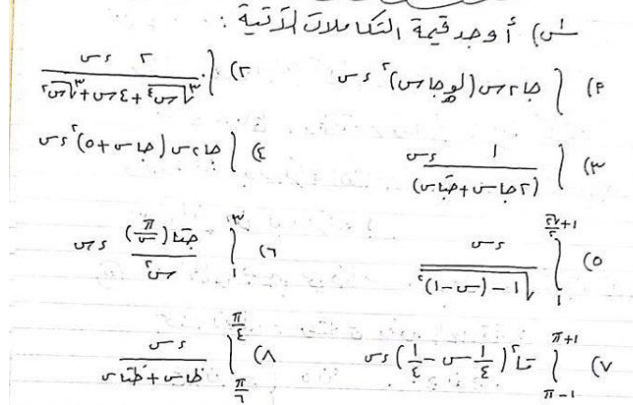 س) أوجد قيمة التكاملات الآتية :
١) ∫ جا٢س (لو_هـ جاس)^٢ ءس
٢) ∫ ٢ ءس / (∛س^٤ + ٤س + ∛س^٢)
٣) ∫ ١ / (٢جاس + جتاس) ءس
٤) ∫ جا٢س (جاس + ٥)^٢ ءس
٥) ∫_١^{١+√٢/٢} ءس / √(١ - (س-١)^٢)
٦) ∫_١^٣ جتا(π/س) / س^٢ ءس
٧) ∫_{π-١}^{π+١} قا^٢(١/٤ س - ١/٤) ءس
٨) ∫_{π/٦}^{π/٤} ءس / (ظاس + ظتاس)